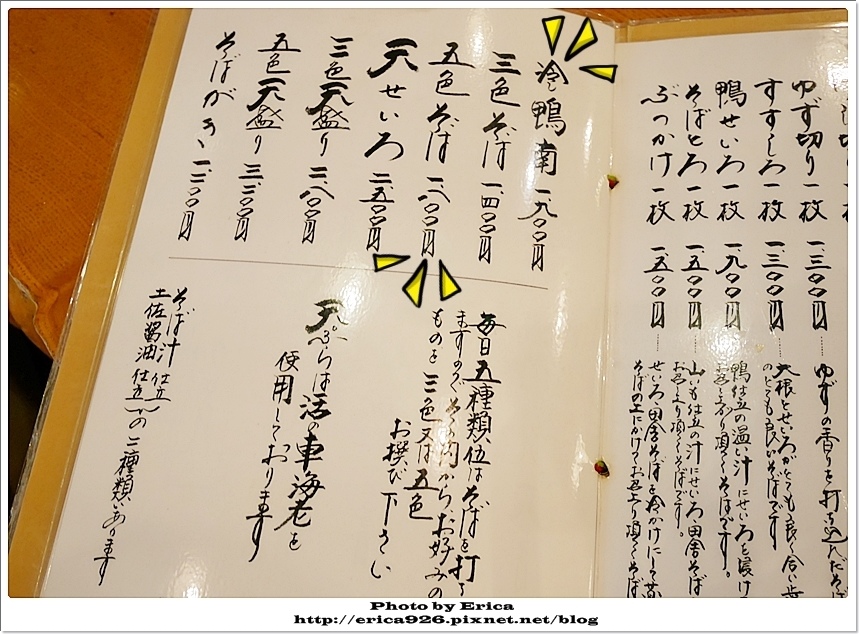 ゆず切り 一枚 一、三〇〇円
ゆずの香りを打ち込んだそば
すずしろ 一枚 一、三〇〇円
大根とせいろがとても良く合い歯
のどごしも良いそばです
鴨せいろ 一枚 一、九〇〇円
鴨仕立の温い汁にせいろを浸け
お召し上り頂くそばです。
そばとろ 一枚 一、五〇〇円
山いも仕立の汁にせいろ、田舎そば
お召し上り頂くそばです。
ぶっかけ 一枚 一、五〇〇円
せいろ、田舎そばを冷かけにして
そばの上にかけてお召し上り頂くそば
冷し鴨南 一、九〇〇円
三色そば 一、四〇〇円
五色そば 一、八〇〇円
天せいろ 二、五〇〇円
三色天盛り 二、八〇〇円
五色天盛り 三、二〇〇円
そばがき 一、二〇〇円
毎日五種類位はそばを打ち
ますのでその内からお好みの
ものを三色又は五色
お撰び下さい
天ぷらは活の車海老を
使用しております
そば汁仕立
土佐醤油仕立
の二種類あります
Photo by Erica
http://erica926.pixnet.net/blog